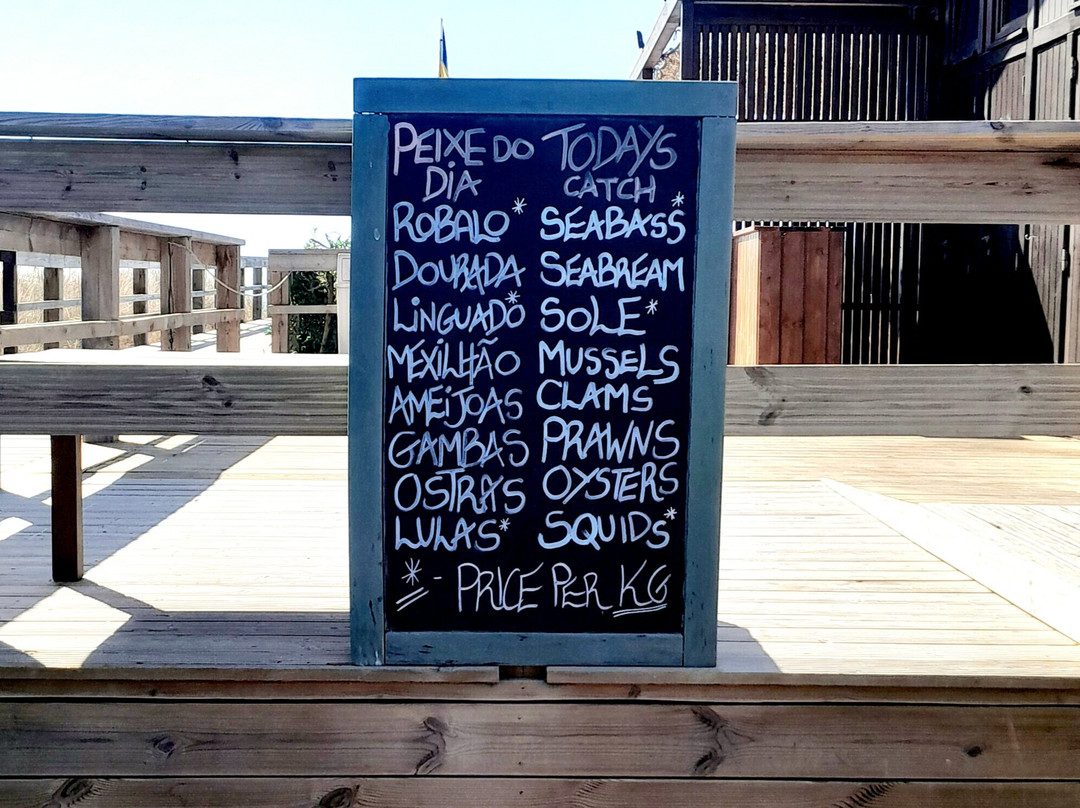 PEIXE DO TODAYS
DIA CATCH
ROBALO* SEABASS*
DOURADA SEABREAM
LINGUADO* SOLE*
MEXILHÃO MUSSELS
AMEIJOAS CLAMS
GAMBAS PRAWNS
OSTRAS OYSTERS
LULAS* SQUIDS*
* - PRICE PER KG